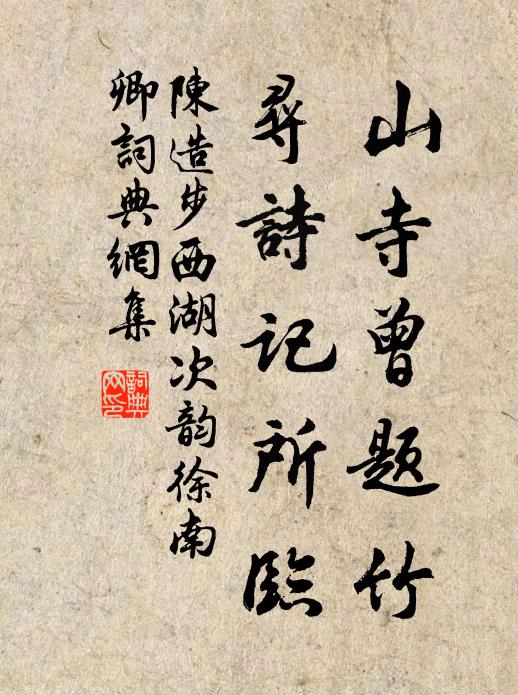 山寺曾題竹
尋詩記所臨
陳造步西湖次韵徐南
卿詞典網集
詞典网印